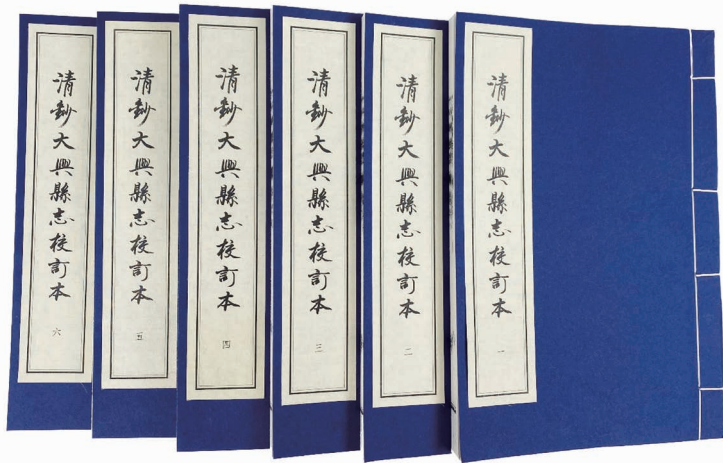 清鈔大興縣志校訂本
一
清鈔大興縣志校訂本
二
清鈔大興縣志校訂本
三
清鈔大興縣志校訂本
四
清鈔大興縣志校訂本
五
清鈔大興縣志校訂本
六